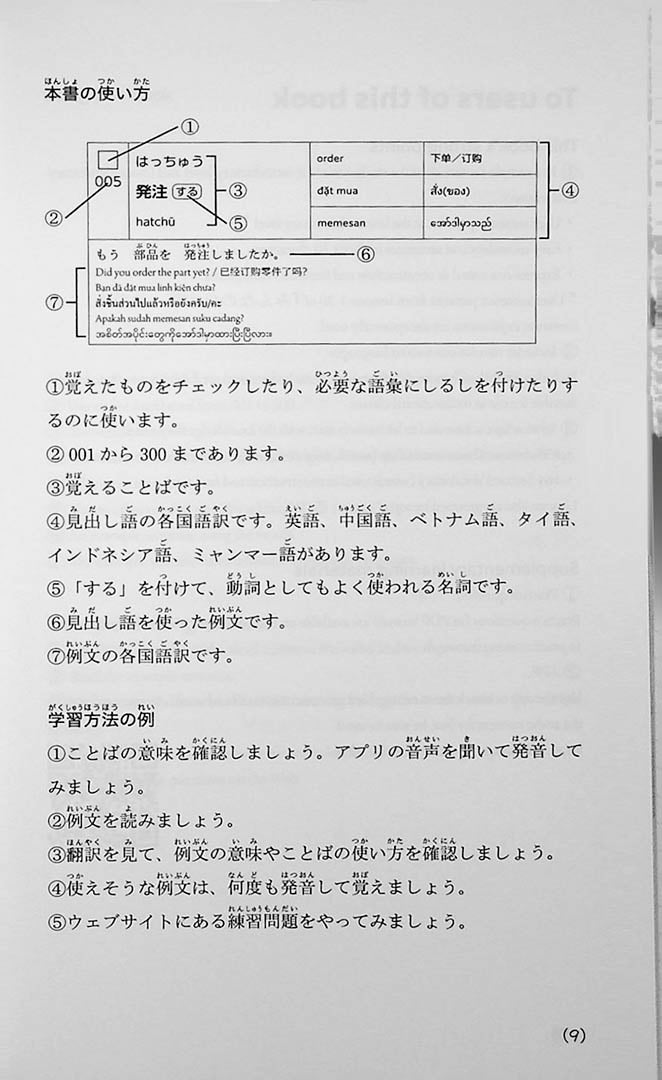 本書の使い方
①
005
②
はっちゅう
発注 する
hatchū
③
⑤
order 下单／订购
đặt mua สั่ง(ของ)
memesan အော်ဒါမှာသည်
④
もう 部品を 発注しましたか。 ⑥
⑦
Did you order the part yet? / 已经订购零件了吗?
Bạn đã đặt mua linh kiện chưa?
สั่งชิ้นส่วนไปแล้วหรือยังครับ/คะ
Apakah sudah memesan suku cadang?
အစိတ်အပိုင်းတွေကိုအော်ဒါမှာထားပြီးပြီလား။
①覚えたものをチェックしたり、必要な語彙にしるしを付けたりす
るのに使います。
② 001 から 300 まであります。
③覚えることばです。
④見出し語の各国語訳です。英語、中国語、ベトナム語、タイ語、
インドネシア語、ミャンマー語があります。
⑤「する」を付けて、動詞としてもよく使われる名詞です。
⑥見出し語を使った例文です。
⑦例文の各国語訳です。
学習方法の例
①ことばの意味を確認しましょう。アプリの音声を聞いて発音して
みましょう。
②例文を読みましょう。
③翻訳を見て、例文の意味やことばの使い方を確認しましょう。
④使えそうな例文は、何度も発音して覚えましょう。
⑤ウェブサイトにある練習問題をやってみましょう。
(9)